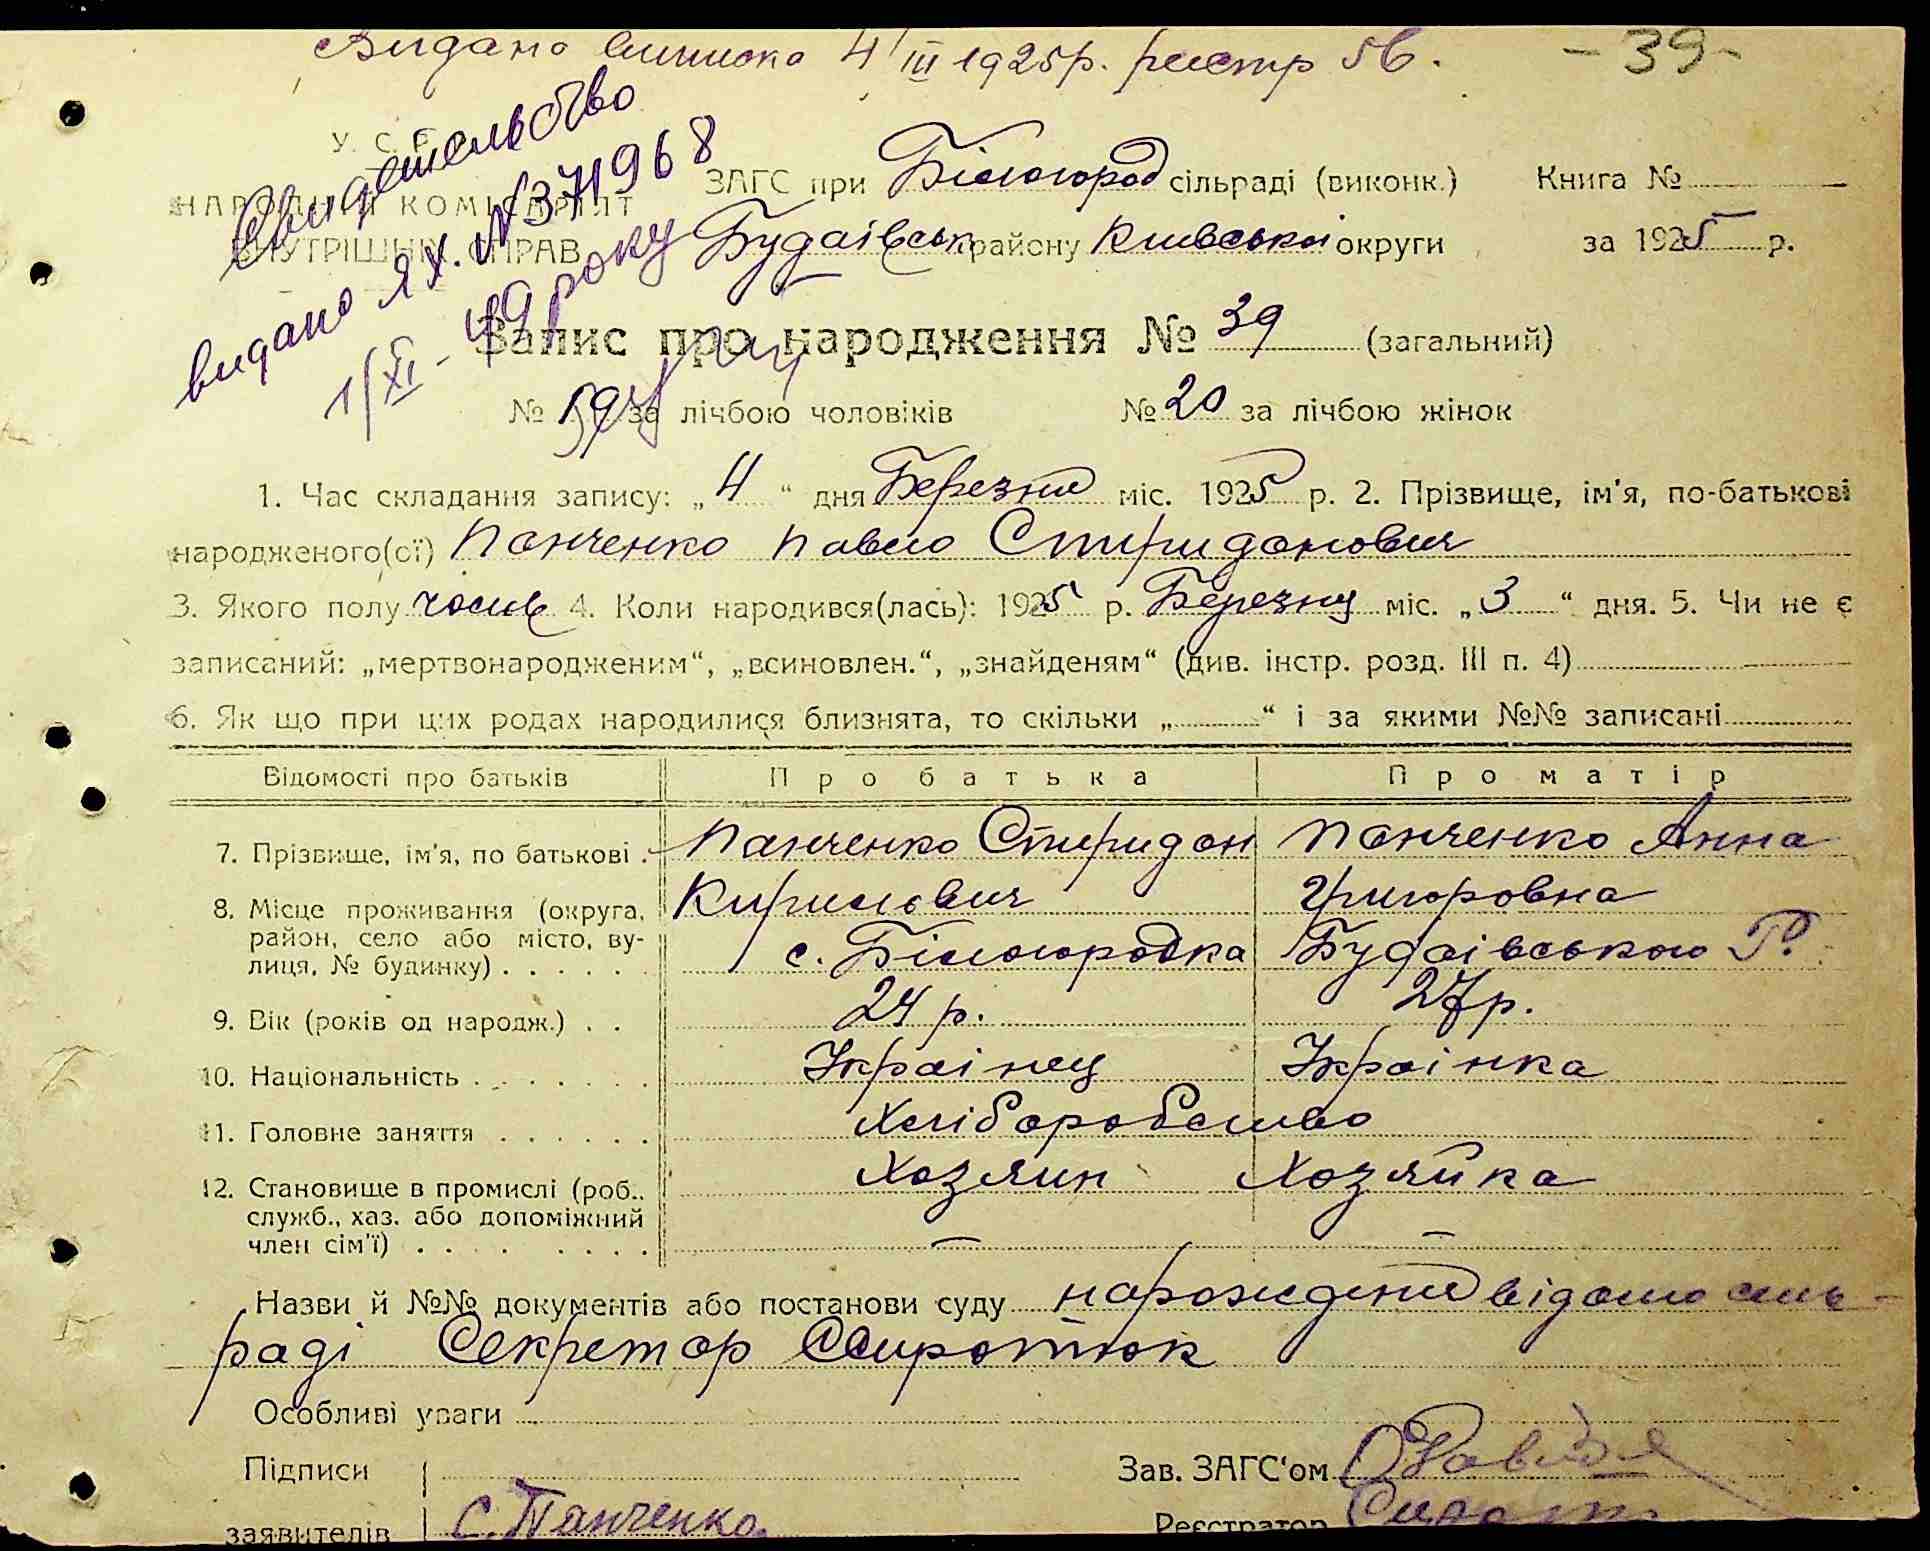 Видано виписка 4/III 1925р. реєстр 56.
- 39 -
Свидетельство
видано ЯХ. №371968
1/XI - 49 року
У. С. Р.
НАРОДНІЙ КОМІСАРІЯТ
ВНУТРІШНІХ СПРАВ
ЗАГС при Білогород сільраді (виконк.) Книга №
Будаївськ району Київської округи за 1925 р.
Запис про народження № 39 (загальний)
№ 19 за лічбою чоловіків № 20 за лічбою жінок
1. Час складання запису: „ 4 “ дня Березня міс. 1925 р. 2. Прізвище, ім'я, по-батькові
народженого(ої) Панченко Павло Спиридонович
3. Якого полу чолов 4. Коли народився(лась): 1925 р. Березну міс. „ 3 “ дня. 5. Чи не є
записаний: „мертвонародженим“, „всиновлен.“, „знайденям“ (див. інстр. розд. III п. 4)
6. Як що при цих родах народилися близнята, то скільки „ “ і за якими №№ записані
Відомості про батьків Про батька Про матір
7. Прізвище, ім'я, по батькові . Панченко Спиридон Панченко Анна
Кирилович Григоровна
8. Місце проживання (округа,
район, село або місто, ву-
лиця, № будинку) . . . . . с. Білогородка Будаівського Р.
9. Вік (років од народж.) . . 24 р. 27 р.
10. Національність . . . . . . . Украінец Украінка
11. Головне заняття . . . . . . Хліборобство
12. Становище в промислі (роб., Хозяин Хозяйка
служб., хаз. або допоміжний
член сім'ї) . . . . . . . . — —
Назви й №№ документів або постанови суду нарождения відомо сль-
раді Секретар Сиротюк
Особливі уваги
Підписи Зав. ЗАГС'ом
заявителів С. Панченко. Реєстратор